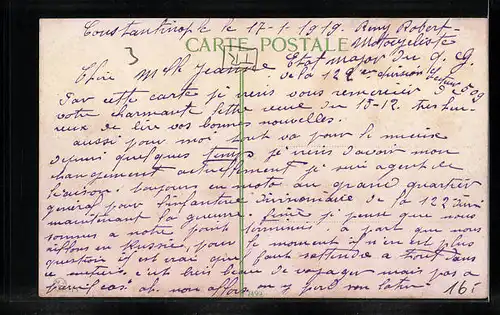 Constantinople le 17-1-1919. Remy Robert
Motocycliste
CARTE POSTALE
3
Chère Mlle Jeanne Etat Major du Q. G.
de la 122 e division
Par cette carte je viens vous remercier
votre charmante lettre venue du 15-12 très heu-
reux de lire vos bonnes nouvelles.
aussi pour moi. tout va pour le mieux
depuis quelques temps je viens d'avoir mon
changement actuellement je suis agent de
liaison. toujours en moto au grand quartier
général pour l'infanterie divisionnaire de la 122 divi
maintenant la guerre finie je pense que nous
sommes a notre point terminus. a part que nous
filions en Russie, pour le moment il n'en est plus
question il est vrai que faut s'attendre a tout dans
ce métier. c'est bien beau de voyager mais pas a
pareil cas. ah. non alors on y perd son latin.
16.